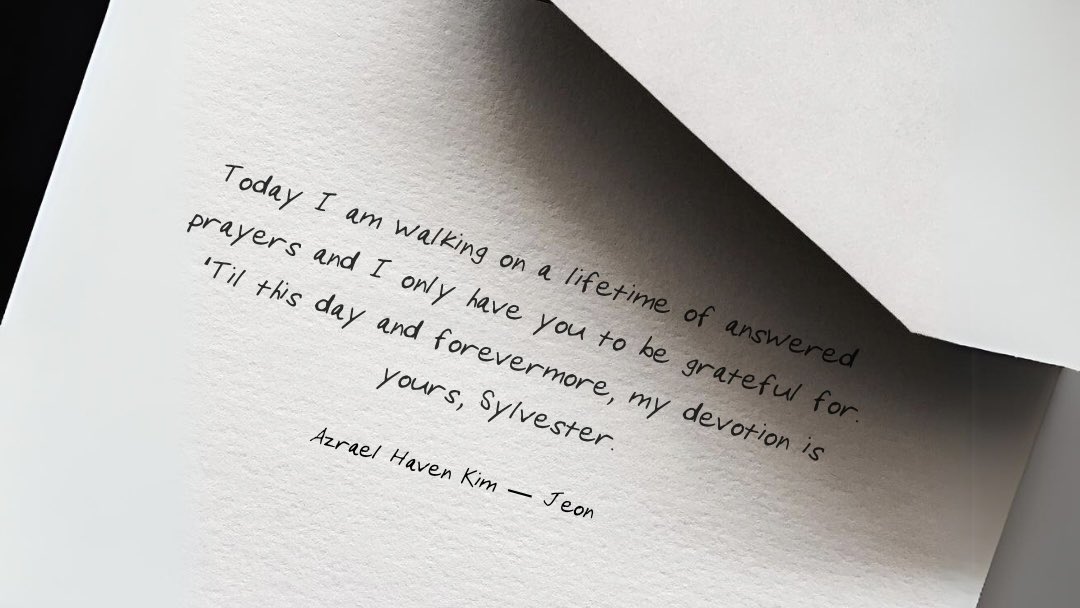 Today I am walking on a lifetime of answered
prayers and I only have you to be grateful for.
'Til this day and forevermore, my devotion is
yours, Sylvester.
Azrael Haven Kim — Jeon